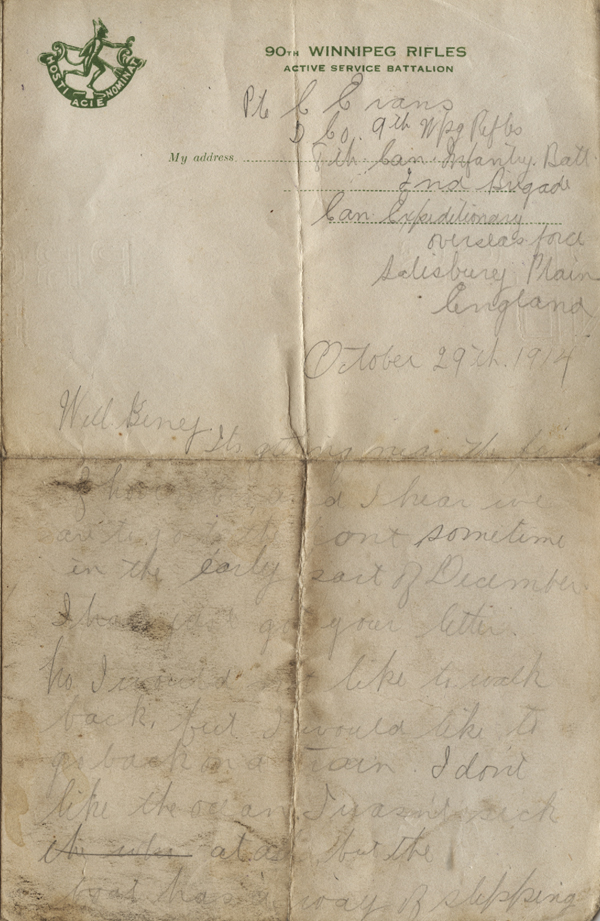 HOSTI ACIE NOMINATI
90TH WINNIPEG RIFLES
ACTIVE SERVICE BATTALION
Pte C Evans
D Co. 9th Wpg Rifles
My address 8th Can Infantry Batt
2nd Brigade
Can Expeditionary
overseas force
Salisbury Plain
England
October 29th. 1914
Well Its getting near the
I hear we
are to go to the front sometime
in the early part of December
I have got your letter.
No I would not like to walk
back, but I would like to
go back on a train. I dont
like the ocean I wasnt sick
at all but the
boat has a way of stepping